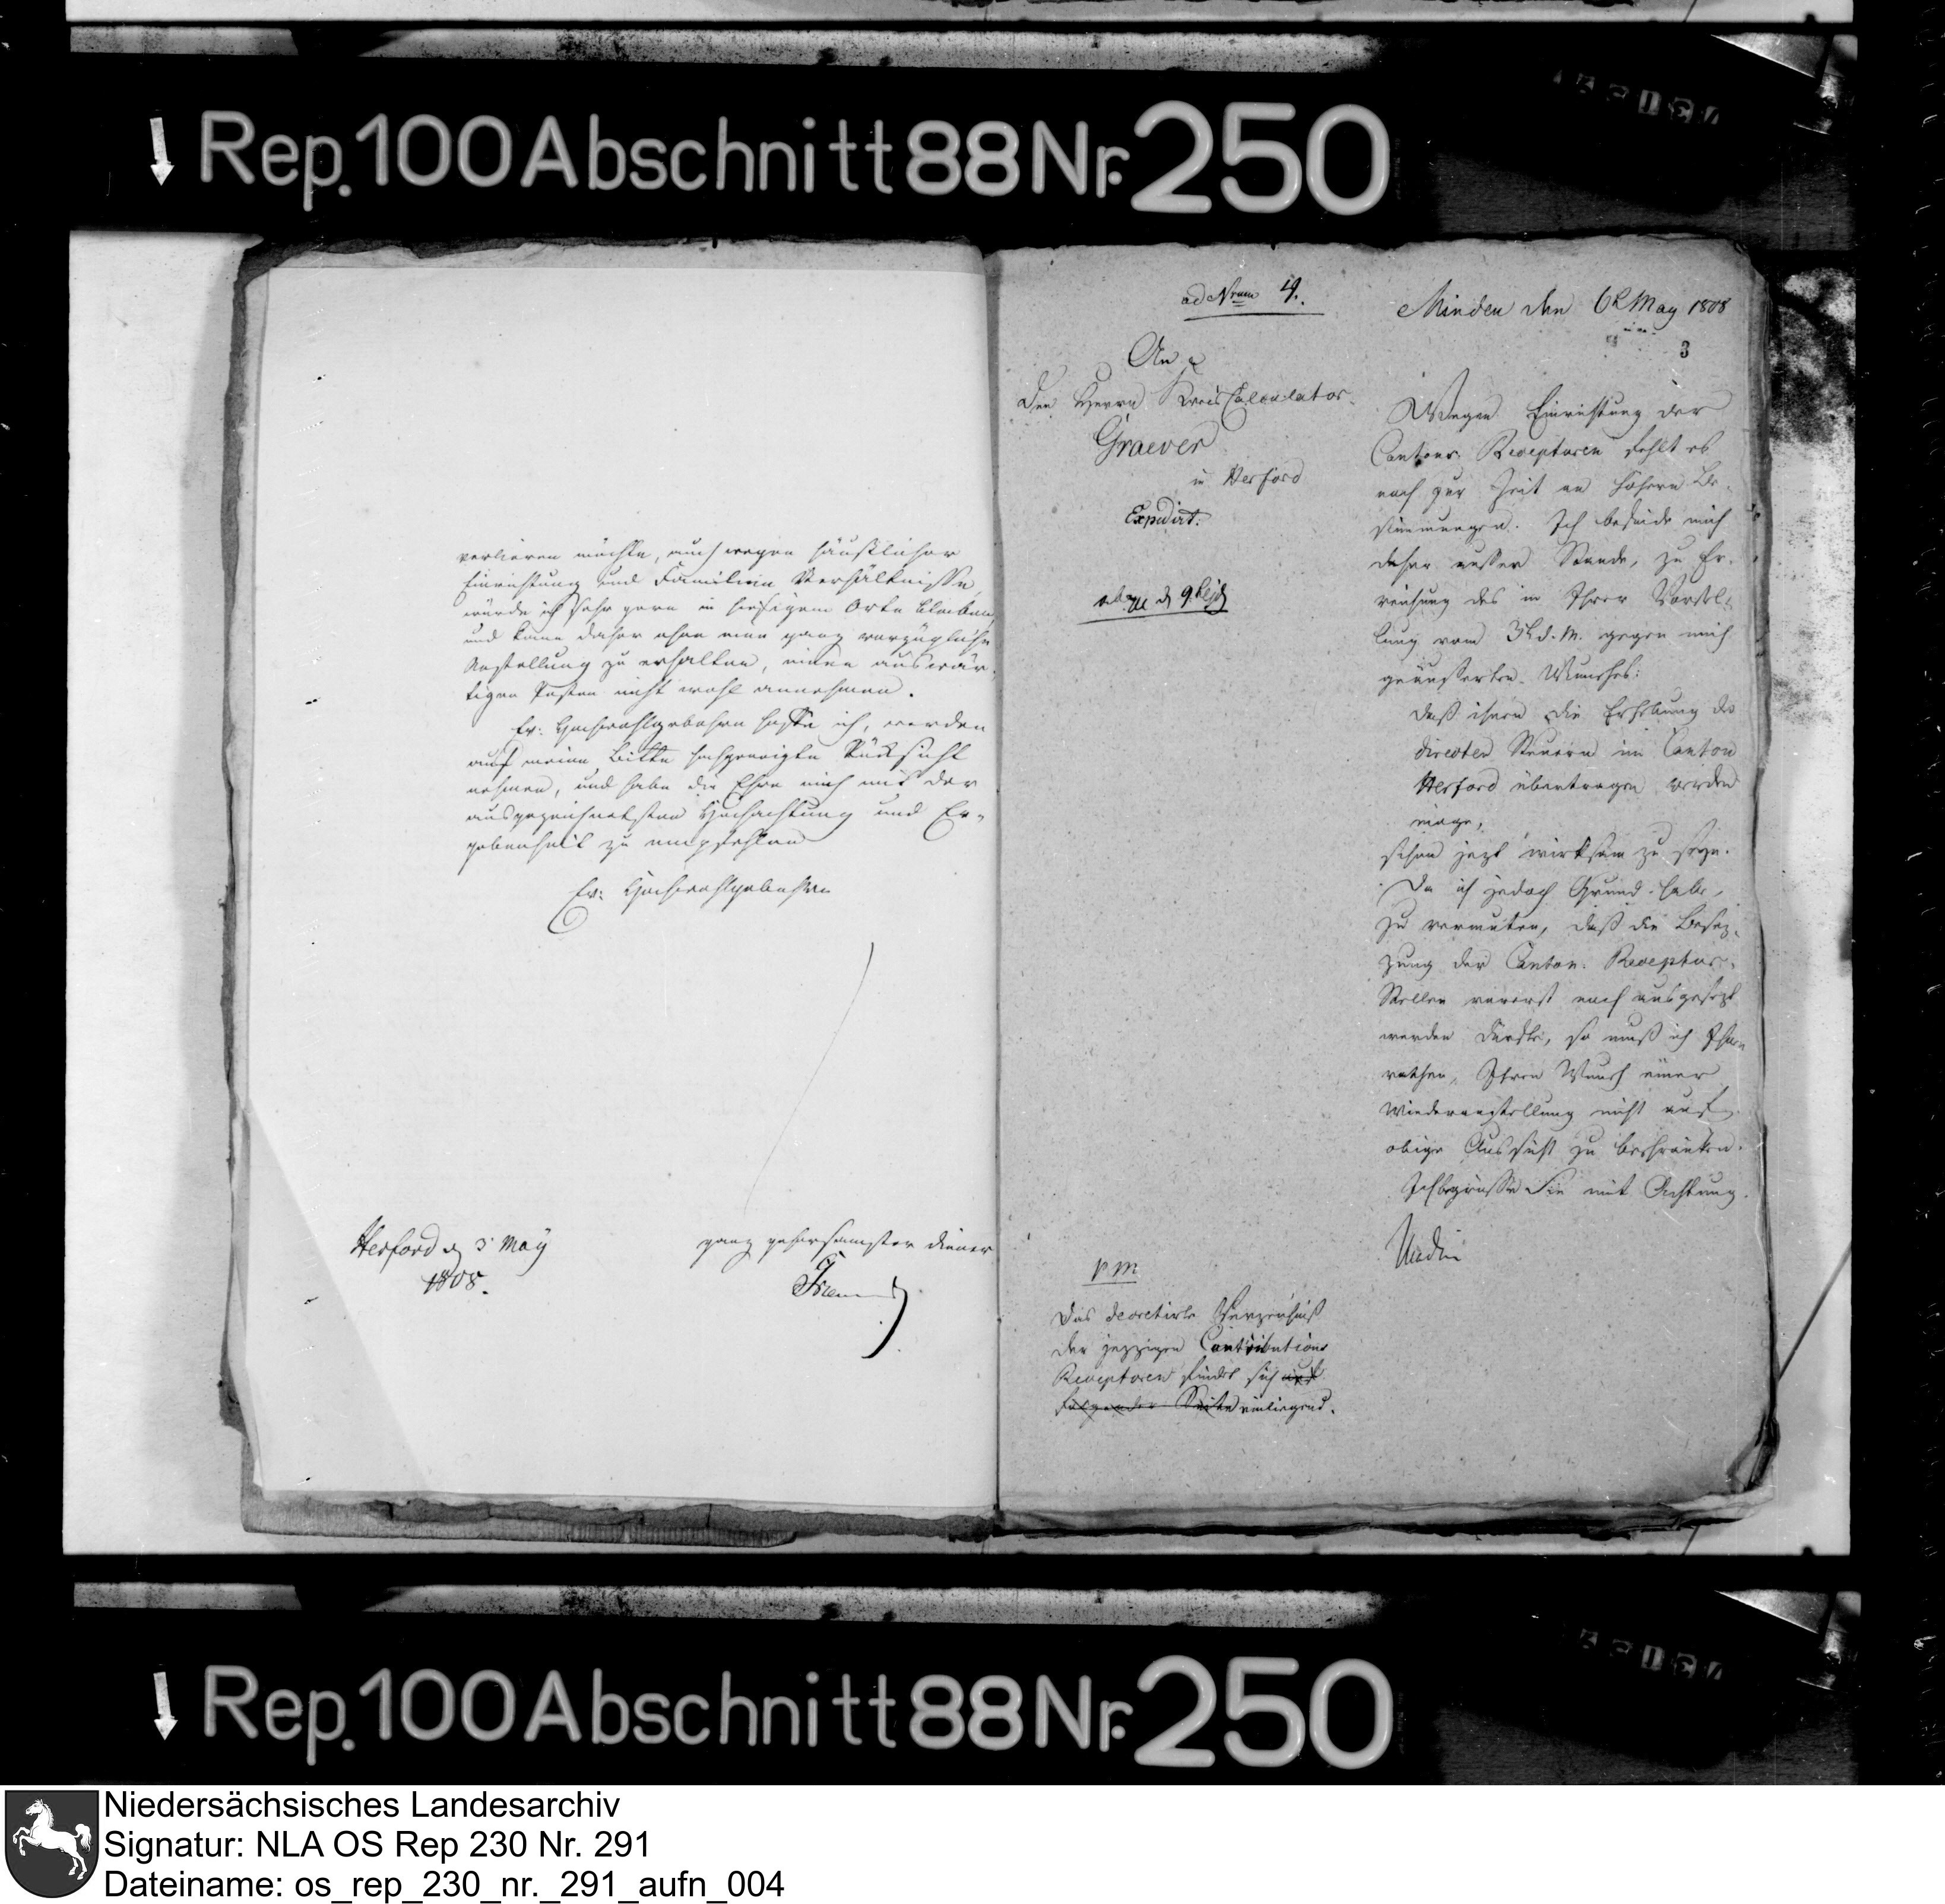 Rep. 100 Abschnitt 88 Nr. 250
verlieren möchte, auch wegen häuslicher
Einrichtung und Familien Verhältnisse,
würde ich sehr gern in hiesigem Orte bleiben,
und kann daher ohne eine ganz vorzügliche
Anstellung zu erhalten, einen auswär-
tigen Posten nicht wohl annehmen.
Ew: Hochwohlgebohren hoffe ich, werden
auf meine Bitte hochgeneigte Rücksicht
nehmen, und habe die Ehre mich mit der
ausgezeichnetsten Hochachtung und Er-
gebenheit zu empfehlen
Ew: Hochwohlgebohren
Herford d 3 May
1808.
ganz gehorsamster Diener
ad Num 4.
Minden den 6t May 1808
3
An
Den Herrn Kreis Calculator
Graever
in Herford
Expedirt.
Wegen Einrichtung der
Cantons Recepturen fehlt es
noch zur Zeit an höhern Be-
stimmungen. Ich befinde mich
daher ausser Stande, zu Er-
reichung des in Ihrer Vorstel-
lung vom 3t d. M. gegen mich
geäusserten Wunsches:
daß ihnen die Erhebung der
directen Steuern im Canton
Herford übertragen werden
möge,
schon jezt wirksam zu seyn.
Da ich jedoch Grund habe,
zu vermuten, daß die Besez-
zung der Canton Receptur-
Stellen vorerst noch ausgesezt
werden dürfte, so muß ich Ihnen
rathen, Ihren Wunsch einer
Wiederanstellung nicht auf
obige Aussicht zu beschränken.
Ich begrüsse Sie mit Achtung.
p. m
Das decretirte Verzeichniß
der jezzigen Contributions
Recepturen findet sich auf
folgender Seite einliegend.
Rep. 100 Abschnitt 88 Nr. 250
Niedersächsisches Landesarchiv
Signatur: NLA OS Rep 230 Nr. 291
Dateiname: os_rep_230_nr._291_aufn_004